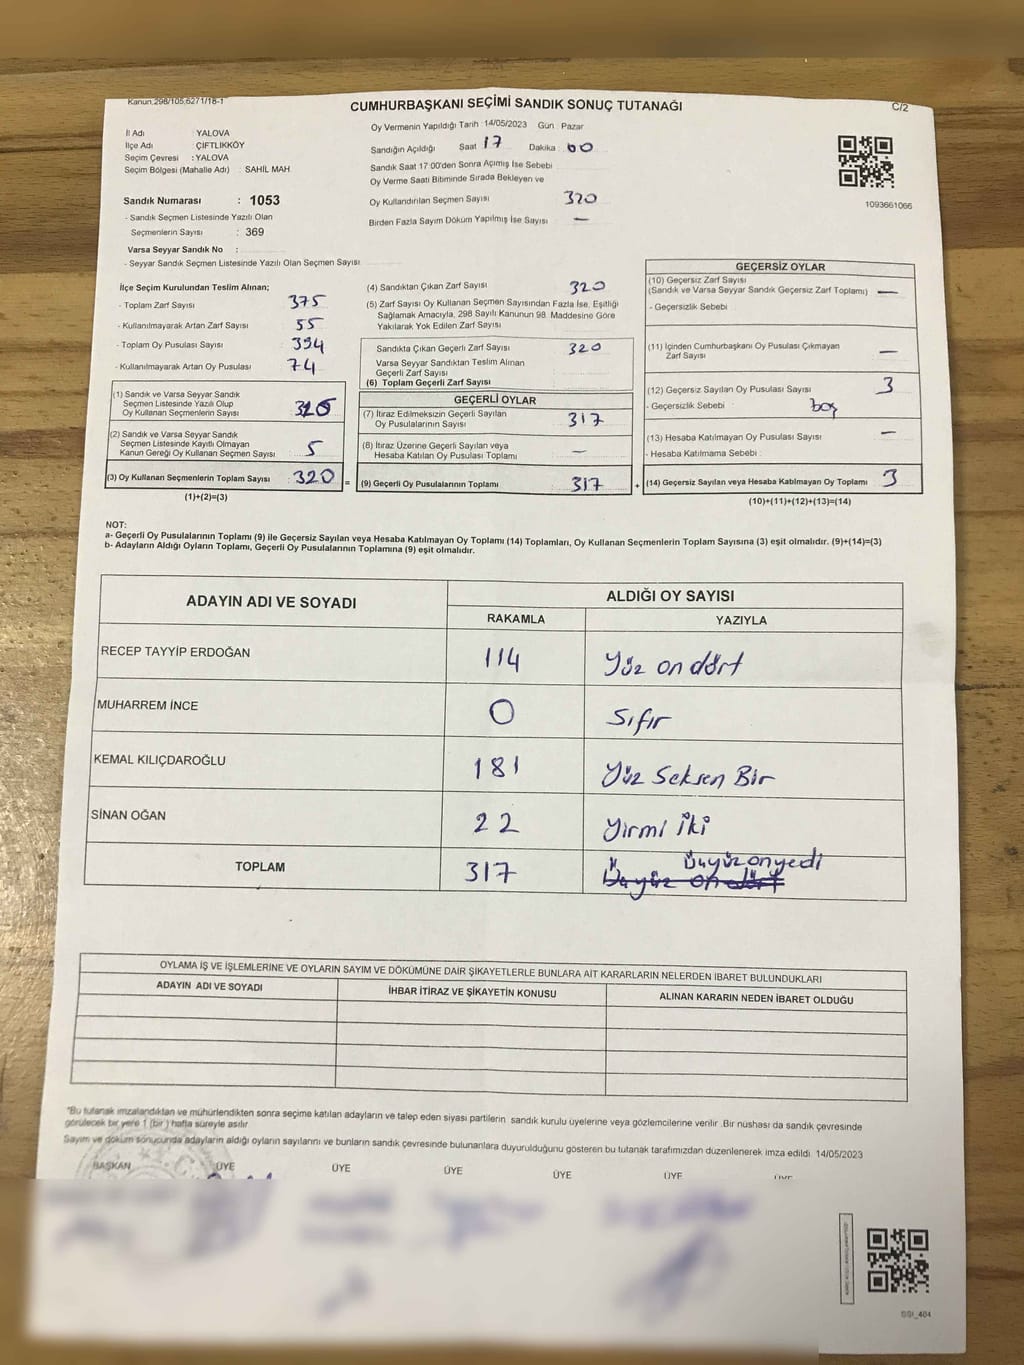 Kanun:298/105,6271/18-1
CUMHURBAŞKANI SEÇİMİ SANDIK SONUÇ TUTANAĞI
C/2
İl Adı : YALOVA
İlçe Adı : ÇİFTLİKKÖY
Seçim Çevresi : YALOVA
Seçim Bölgesi (Mahalle Adı) : SAHİL MAH.
Oy Vermenin Yapıldığı Tarih : 14/05/2023 Gün : Pazar
Sandığın Açıldığı Saat 17 Dakika 00
Sandık Saat 17:00'den Sonra Açımış İse Sebebi
Oy Verme Saati Bitiminde Sırada Bekleyen ve
Oy Kullandırılan Seçmen Sayısı 320
Birden Fazla Sayım Döküm Yapılmış İse Sayısı —
1093661066
Sandık Numarası : 1053
- Sandık Seçmen Listesinde Yazılı Olan
Seçmenlerin Sayısı : 369
Varsa Seyyar Sandık No :
- Seyyar Sandık Seçmen Listesinde Yazılı Olan Seçmen Sayısı
İlçe Seçim Kurulundan Teslim Alınan;
- Toplam Zarf Sayısı 375
- Kullanılmayarak Artan Zarf Sayısı 55
- Toplam Oy Pusulası Sayısı 394
- Kullanılmayarak Artan Oy Pusulası 74
(1) Sandık ve Varsa Seyyar Sandık
Seçmen Listesinde Yazılı Olup
Oy Kullanan Seçmenlerin Sayısı
(2) Sandık ve Varsa Seyyar Sandık
Seçmen Listesinde Kayıtlı Olmayan
Kanun Gereği Oy Kullanan Seçmen Sayısı 5
(3) Oy Kullanan Seçmenlerin Toplam Sayısı : 320 =
(1)+(2)=(3)
(4) Sandıktan Çıkan Zarf Sayısı 320
(5) Zarf Sayısı Oy Kullanan Seçmen Sayısından Fazla İse, Eşitliği
Sağlamak Amacıyla, 298 Sayılı Kanunun 98. Maddesine Göre
Yakılarak Yok Edilen Zarf Sayısı
Sandıkta Çıkan Geçerli Zarf Sayısı 320
Varsa Seyyar Sandıktan Teslim Alınan
Geçerli Zarf Sayısı
(6) Toplam Geçerli Zarf Sayısı
GEÇERLİ OYLAR
(7) İtiraz Edilmeksizin Geçerli Sayılan
Oy Pusulalarının Sayısı 317
(8) İtiraz Üzerine Geçerli Sayılan veya
Hesaba Katılan Oy Pusulası Toplamı —
(9) Geçerli Oy Pusulalarının Toplamı 317 +
GEÇERSİZ OYLAR
(10) Geçersiz Zarf Sayısı
(Sandık ve Varsa Seyyar Sandık Geçersiz Zarf Toplamı) —
- Geçersizlik Sebebi
(11) İçinden Cumhurbaşkanı Oy Pusulası Çıkmayan
Zarf Sayısı —
(12) Geçersiz Sayılan Oy Pusulası Sayısı 3
- Geçersizlik Sebebi : boş
(13) Hesaba Katılmayan Oy Pusulası Sayısı —
- Hesaba Katılmama Sebebi :
(14) Geçersiz Sayılan veya Hesaba Katılmayan Oy Toplamı 3
(10)+(11)+(12)+(13)=(14)
NOT:
a- Geçerli Oy Pusulalarının Toplamı (9) ile Geçersiz Sayılan veya Hesaba Katılmayan Oy Toplamı (14) Toplamları, Oy Kullanan Seçmenlerin Toplam Sayısına (3) eşit olmalıdır. (9)+(14)=(3)
b- Adayların Aldığı Oyların Toplamı, Geçerli Oy Pusulalarının Toplamına (9) eşit olmalıdır.
ADAYIN ADI VE SOYADI
ALDIĞI OY SAYISI
RAKAMLA YAZIYLA
RECEP TAYYİP ERDOĞAN 114 Yüz on dört
MUHARREM İNCE 0 Sıfır
KEMAL KILIÇDAROĞLU 181 Yüz Seksen Bir
SİNAN OĞAN 22 Yirmi İki
TOPLAM 317 Üçyüz onyedi
Üçyüz on dört
OYLAMA İŞ VE İŞLEMLERİNE VE OYLARIN SAYIM VE DÖKÜMÜNE DAİR ŞİKAYETLERLE BUNLARA AİT KARARLARIN NELERDEN İBARET BULUNDUKLARI
ADAYIN ADI VE SOYADI
İHBAR İTİRAZ VE ŞİKAYETİN KONUSU
ALINAN KARARIN NEDEN İBARET OLDUĞU
*Bu tutanak imzalandıktan ve mühürlendikten sonra seçime katılan adayların ve talep eden siyasi partilerin sandık kurulu üyelerine veya gözlemcilerine verilir .Bir nüshası da sandık çevresinde
görülecek bir yere 1 (bir ) hafta süreyle asılır
Sayım ve döküm sonucunda adayların aldığı oyların sayılarını ve bunların sandık çevresinde bulunanlara duyurulduğunu gösteren bu tutanak tarafımızdan düzenlenerek imza edildi. 14/05/2023
BAŞKAN ÜYE ÜYE ÜYE ÜYE ÜYE ÜYE